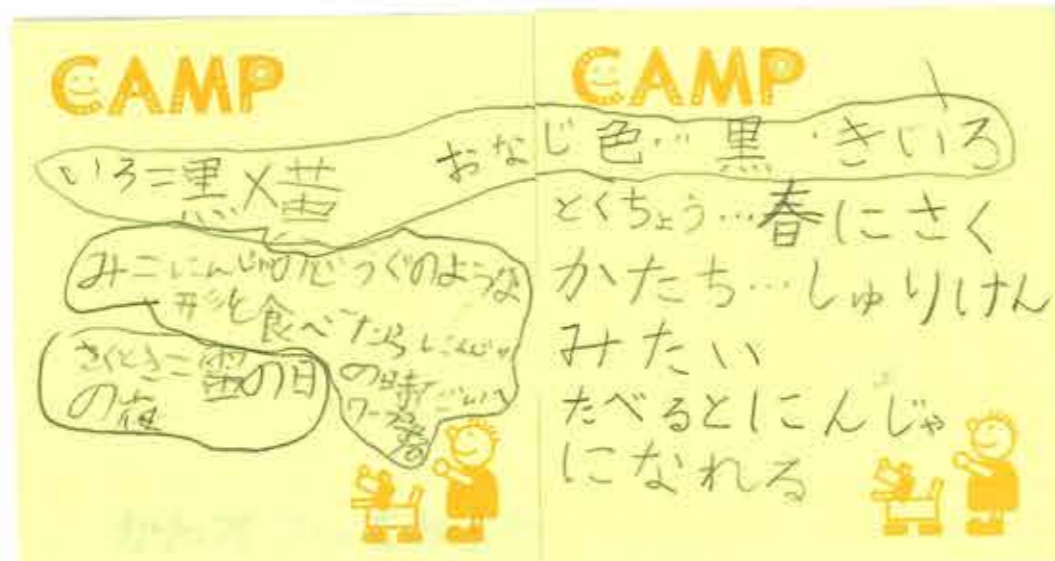 CAMP
いろ=黒×黄
みニにんじゃの
のような
形を食べたらにんじゃ
の時だい
ワープする
さくとき=雷の日
の夜
CAMP
おなじ色…黒・きいろ
とくちょう…春にさく
かたち…しゅりけん
みたい
たべるとにんじゃ
になれる